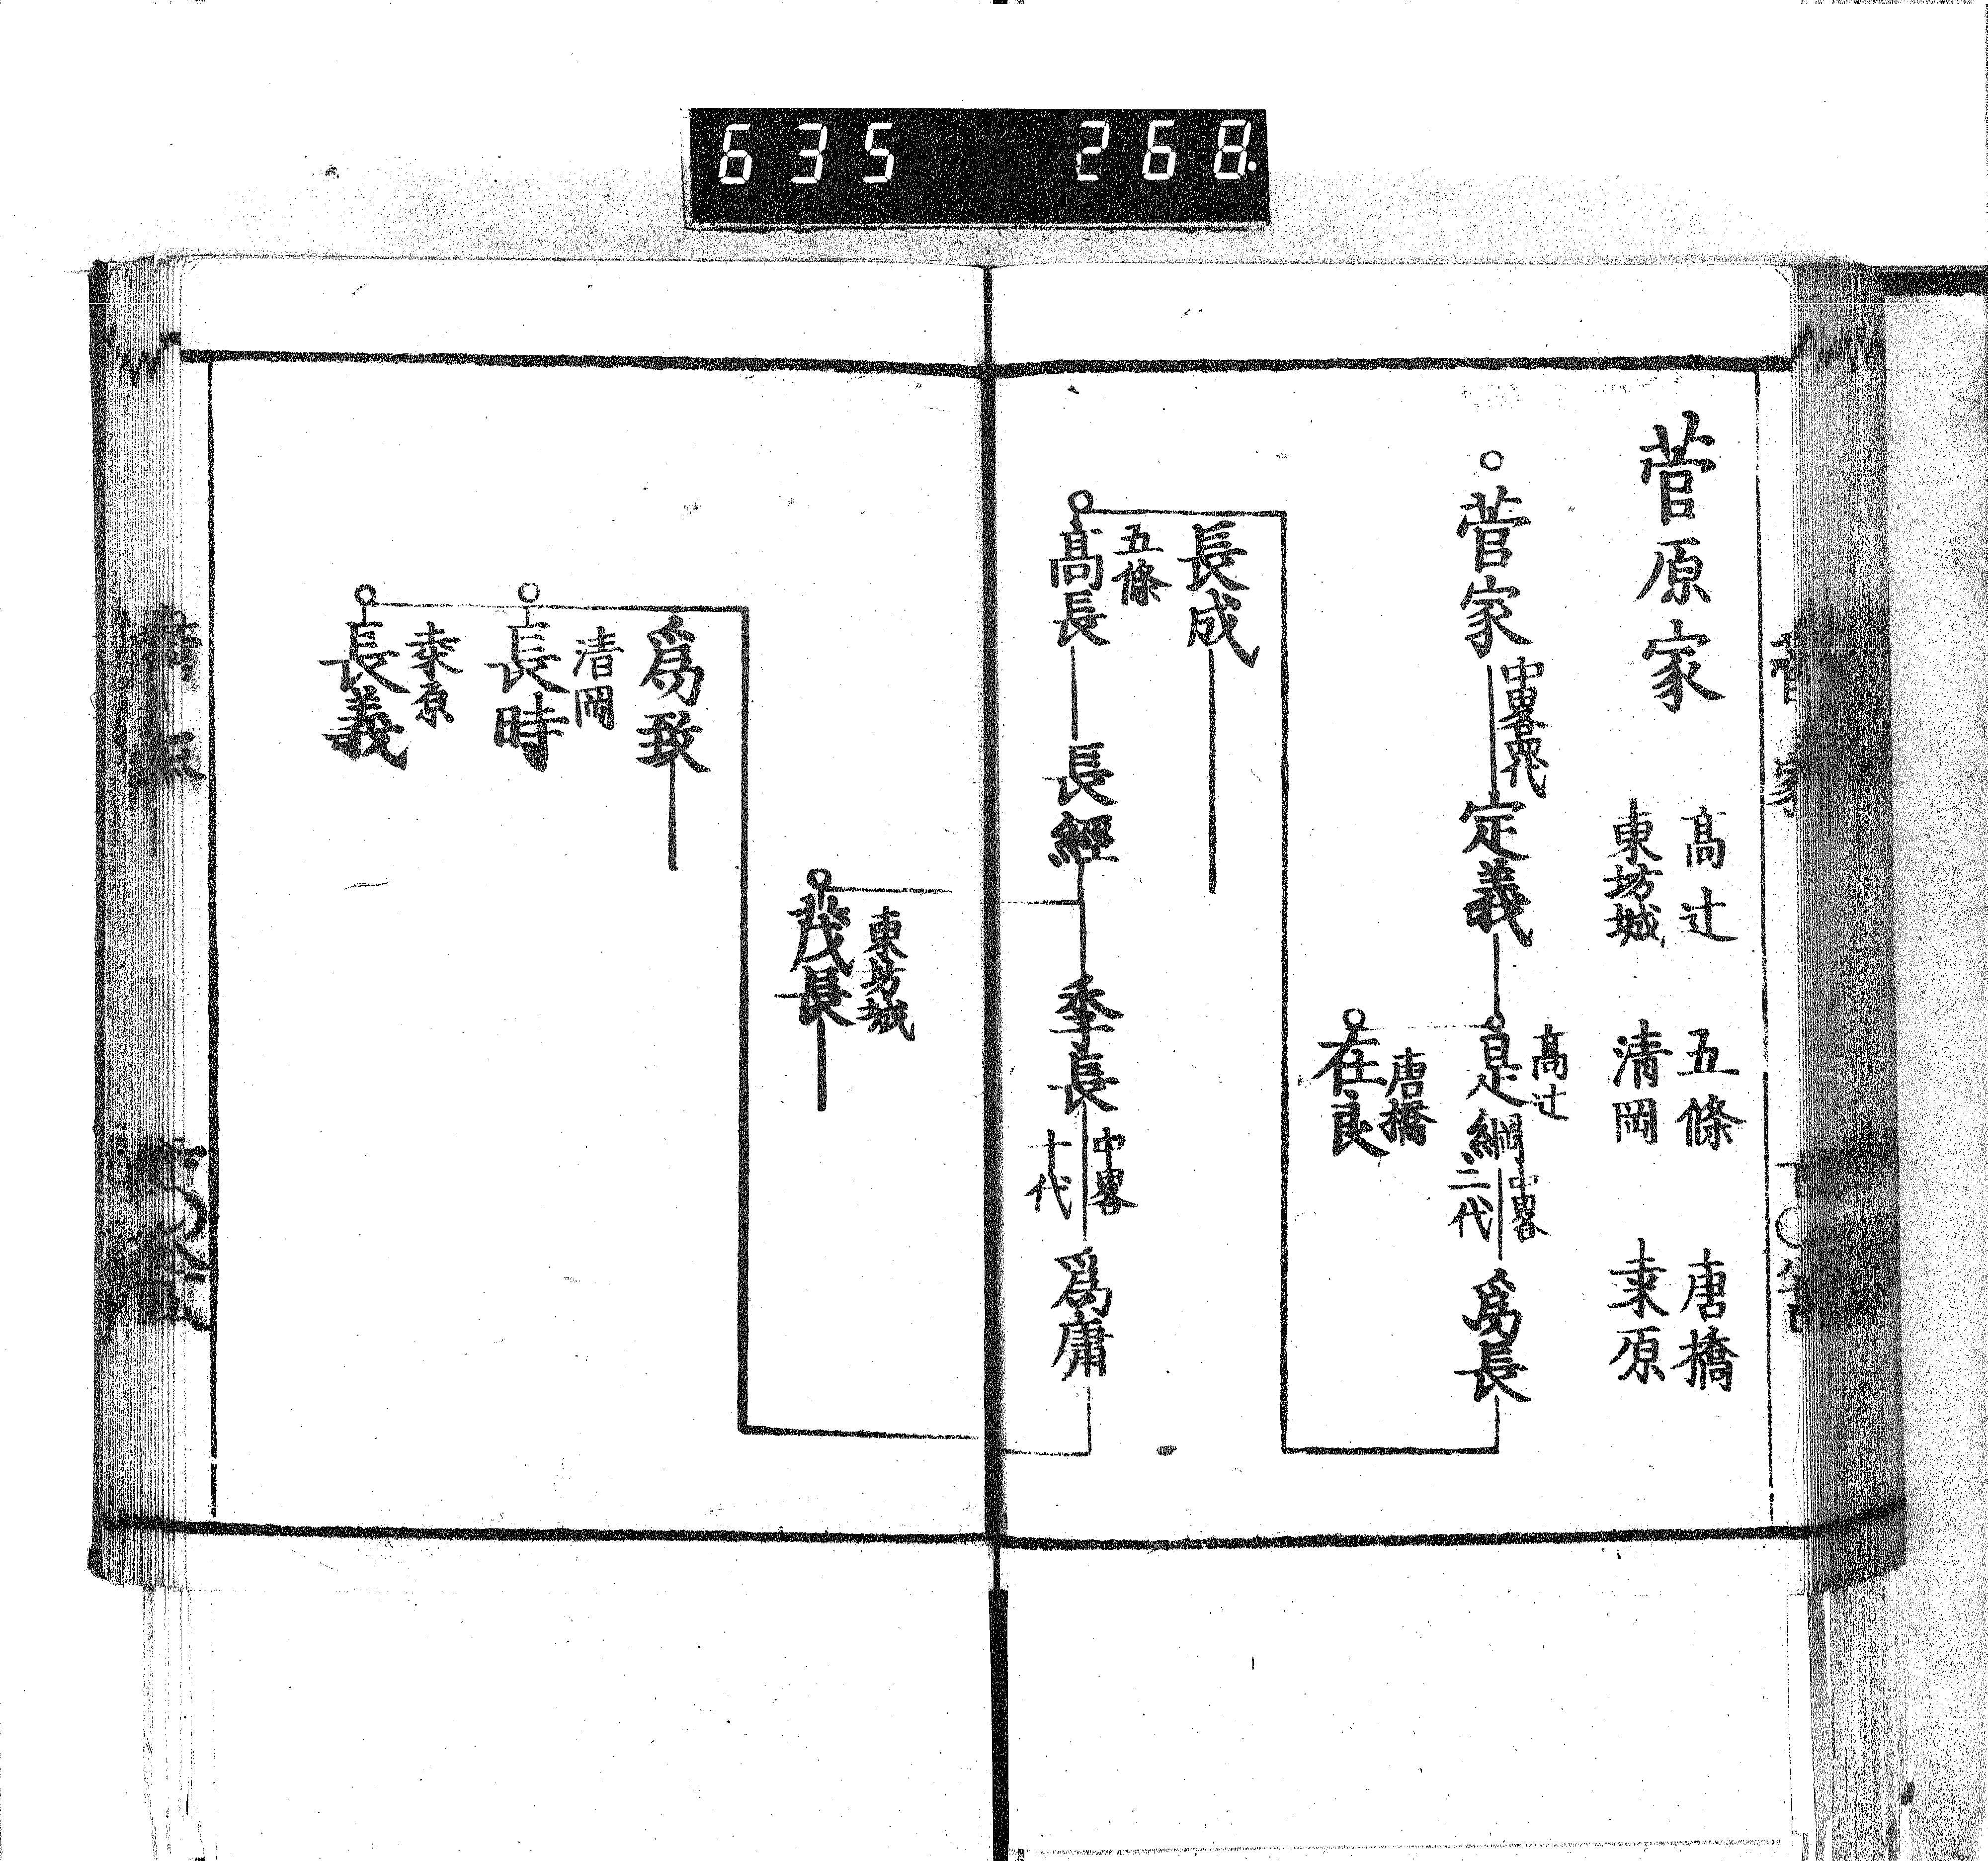 635 268
菅原家
高辻 五條 唐橋
東坊城 清岡 桒原
菅家
中畧両代
定義
高辻
是綱
中畧
二代
爲長
唐橋
在良
長成
五條
高長
長經
季長
中畧
十代
爲庸
東坊城
茂長
爲致
清岡
長時
桒原
長義